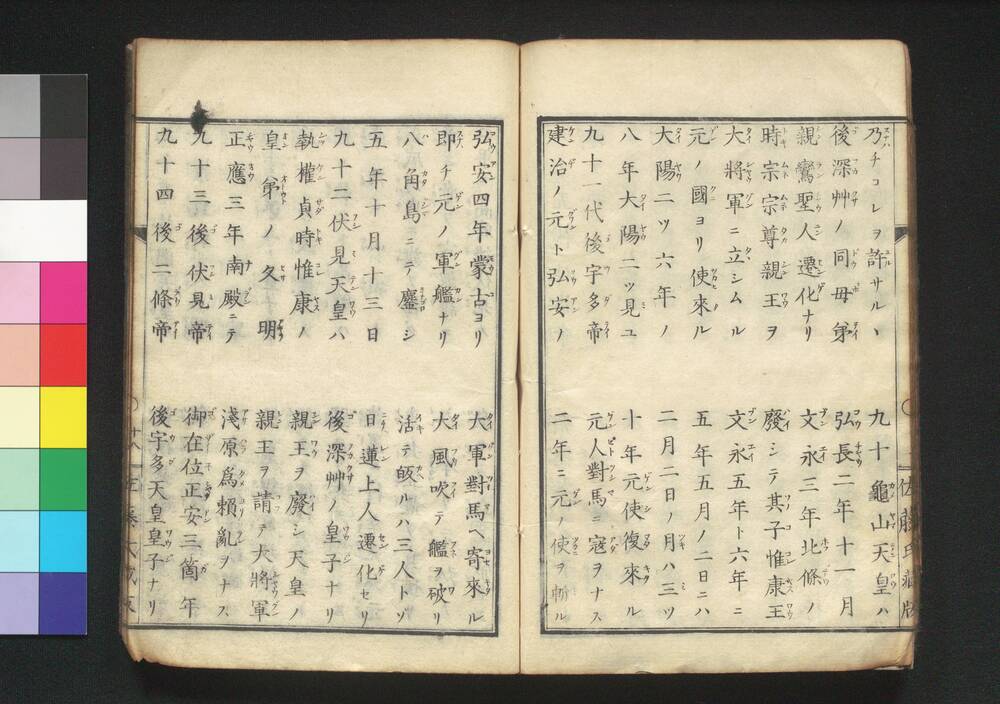 乃チコレヲ許サルヽ
九十龜山天皇ハ
後深艸ノ同母弟
弘長二年十一月
親鸞聖人遷化ナリ
文永三年北條ノ
時宗宗尊親王ヲ
廢シテ其子惟康王
大將軍ニ立シムル
文永五年ト六年ニ
元ノ國ヨリ使來ル
五年五月ノ二日ニハ
大陽二ツ六年ノ
二月二日ノ月ハ三ツ
八年大陽二ツ見ユ
十年元使復來ル
九十一代後宇多帝
元人對馬ニ寇ヲナス
建治ノ元ト弘安ノ
二年ニ元ノ使ヲ斬ル
佐藤氏藏版
弘安四年蒙古ヨリ
大軍對馬ヘ寄來ル
即チ元ノ軍艦ナリ
大風吹テ艦ヲ破リ
八角島ニテ鏖シ
活テ皈ルハ三人トゾ
五年十月十三日
日蓮上人遷化セリ
九十二伏見天皇ハ
後深艸ノ皇子ナリ
執權貞時惟康ノ
親王ヲ廢シ天皇ノ
皇弟ノ久明
親王ヲ請テ大將軍
正應三年南殿ニテ
淺原爲頼亂ヲナス
九十三後伏見帝
御在位正安三箇年
九十四後二條帝
後宇多天皇皇子ナリ